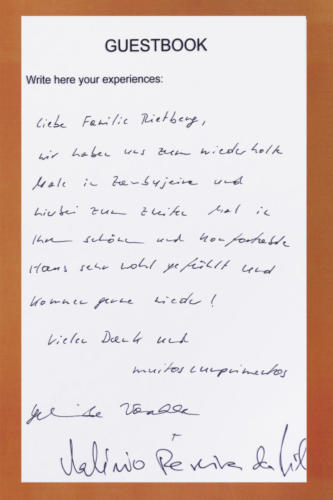 GUESTBOOK
Write here your experiences:
Liebe Familie Rietberg,
wir haben uns zum wiederholten
Male in Zambujeira und
hierbei zum zweiten Mal in
Ihrem schönen und komfortablen
Haus sehr wohl gefühlt und
kommen gerne wieder!
Vielen Dank und
muitos cumprimentos
Valério Pereira da Sil